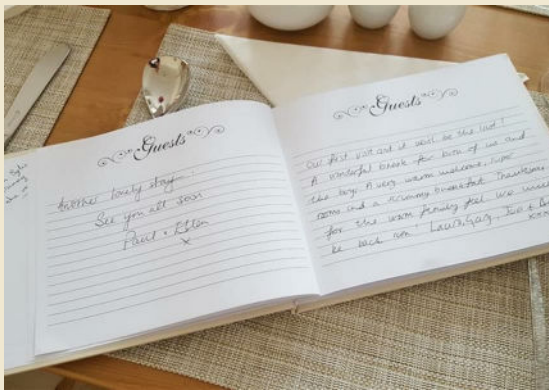 Guests
Another lovely stay
See you all soon
Paul + Ellen
x
Guests
Our first visit and it will be the last!
A wonderful break for both of us and
the boys. A very warm welcome, super
rooms and a yummy breakfast. Thankyou
for the warm friendly feel we will
be back soon! Laura, Gary,
xxx